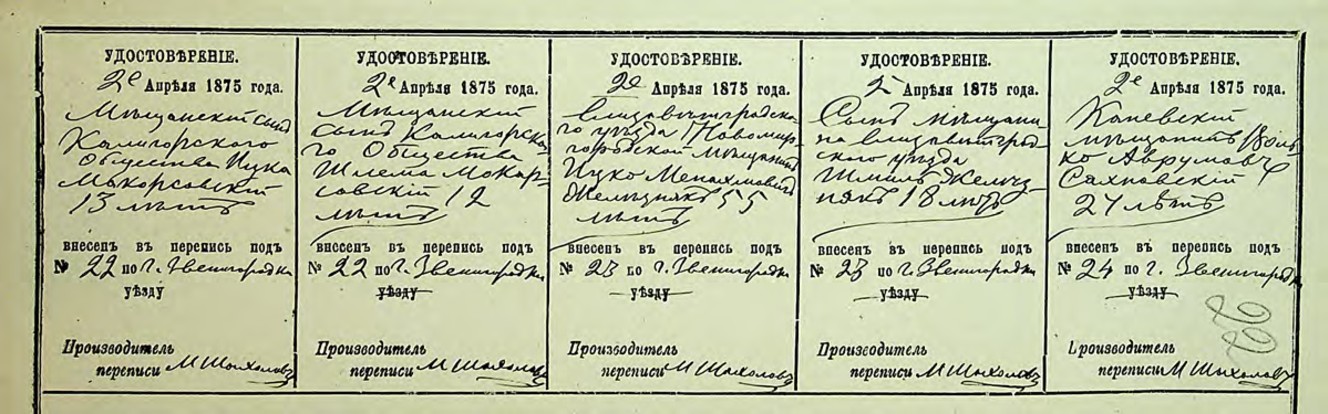 УДОСТОВѢРЕНІЕ.
2е Апрѣля 1875 года.
Мѣщанскій сынъ
Калигорского
Общества Ицка
Макорсовскій
13 лѣтъ
внесенъ въ перепись подъ
№ 22 по г. Звенигородки
уѣзду
Производитель
переписи М
УДОСТОВѢРЕНІЕ.
2е Апрѣля 1875 года.
Мѣщанскій
сынъ Калигорско-
го Общества
Шлема Мокар-
совскій 12
лѣтъ
внесенъ въ перепись подъ
№ 22 по г. Звенигородки
уѣзду
Производитель
переписи М
УДОСТОВѢРЕНІЕ.
2е Апрѣля 1875 года.
Елизаветградско-
го уѣзда Новомир-
городской мѣщанинъ
Ицко Менахмовичъ
Желѣзнякъ 55
лѣтъ
внесенъ въ перепись подъ
№ 23 по г. Звенигородки
уѣзду
Производитель
переписи М
УДОСТОВѢРЕНІЕ.
2 Апрѣля 1875 года.
Сынъ мѣщани-
на елизаветград-
ского уѣзда
Шмиль Желѣз-
някъ 18 лѣтъ
внесенъ въ перепись подъ
№ 23 по г. Звенигородки
уѣзду
Производитель
переписи М
УДОСТОВѢРЕНІЕ.
2е Апрѣля 1875 года.
Каневскій
мѣщанинъ Воль-
ко Аврумовъ
Сахновскій
21 лѣтъ
внесенъ въ перепись подъ
№ 24 по г. Звенигородки
уѣзду
Производитель
переписи М